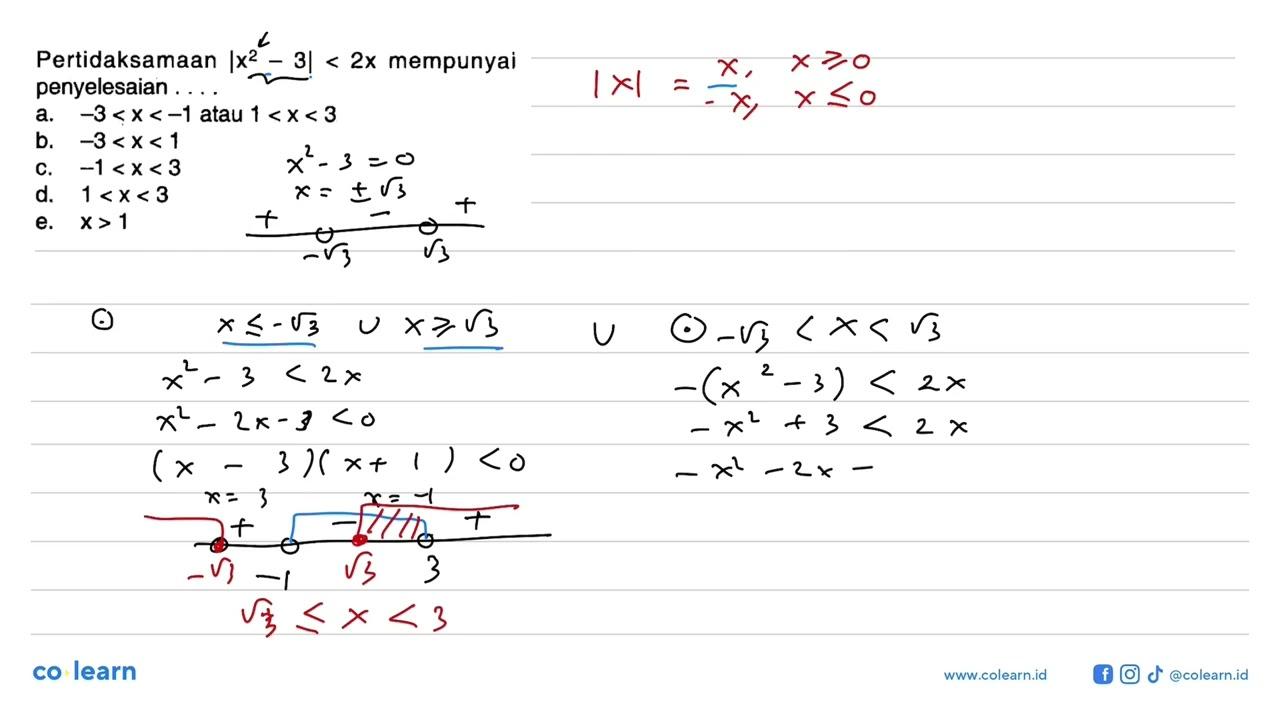 Pertidaksamaan |x² − 3| < 2x mempunyai
penyelesaian . . . .
a. −3 < x < −1 atau 1 < x < 3
b. −3 < x < 1
c. −1 < x < 3
d. 1 < x < 3
e. x > 1
|x| = x, x ≥ 0
-x, x ≤ 0
x² - 3 = 0
x = ± √3
+ - +
-√3 √3
⊙ x ≤ -√3 ∪ x ≥ √3
x² - 3 < 2x
x² - 2x - 3 < 0
(x - 3)(x + 1) < 0
x = 3 x = -1
+ - +
-√3 -1 √3 3
√3 ≤ x < 3
∪ ⊙ -√3 < x < √3
-(x² - 3) < 2x
-x² + 3 < 2x
-x² - 2x -
co learn
www.colearn.id
@colearn.id